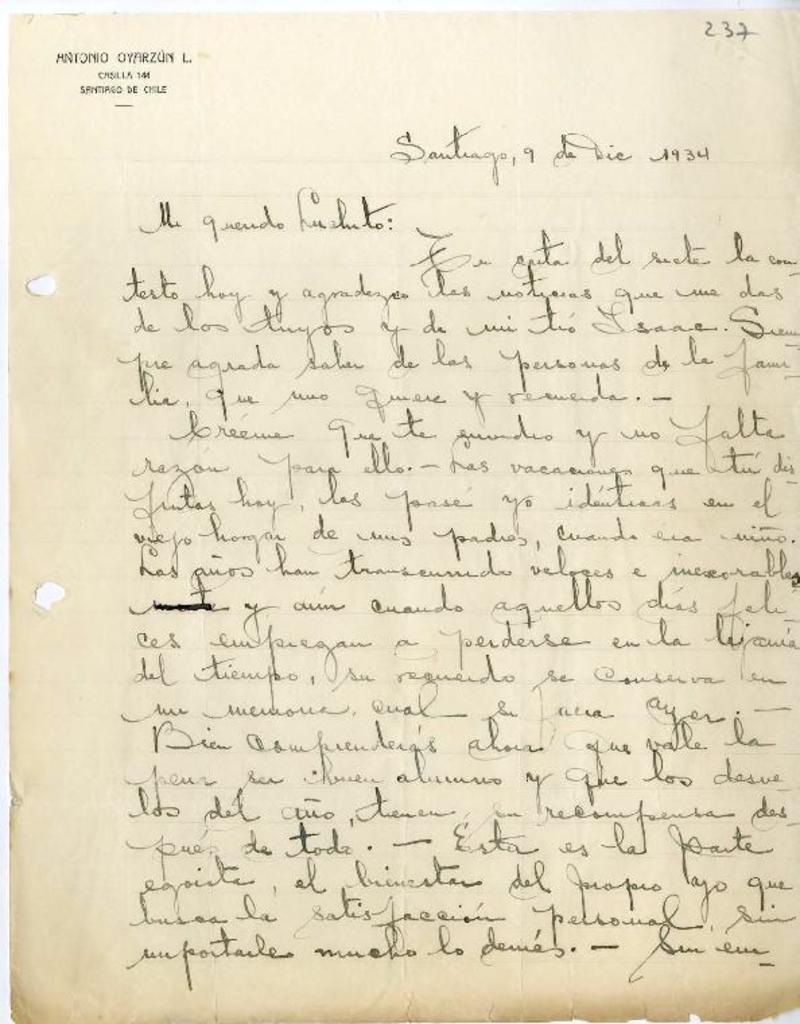 237
ANTONIO OYARZÚN L.
CASILLA 144
SANTIAGO DE CHILE
Santiago, 9 de Dic 1934
Mi querido Luchito:
Tu carta del siete la con
testo hoy y agradezco las noticias que me das
de los tuyos y de mi tió Isaac. Siem
pre agrada saber de las personas de la fami-
lia, que uno quiere y recuerda. —
Créeme que te envidio y no falta
razón para ello. — Las vacaciones que tú dis-
frutas hoy, las pasé yo idénticas en el
viejo horgar de mis padres, cuando era niño.
Los años han transcurrido veloces e inexorables
y aún cuando aquellos días feli-
ces empiezan a perderse en la lejanía
del tiempo, su recuerdo se conserva en
mi memoria, cual si fuera ayer. —
Bien comprenderás ahora que vale la
pena ser buen alumno y que los desve-
los del año, tienen su recompensa des-
pués de todo. — Esta es la parte
egoista, el bienestar del propio yo que
busca la satisfacción personal, sin
importarle mucho lo demés. — Sin em-